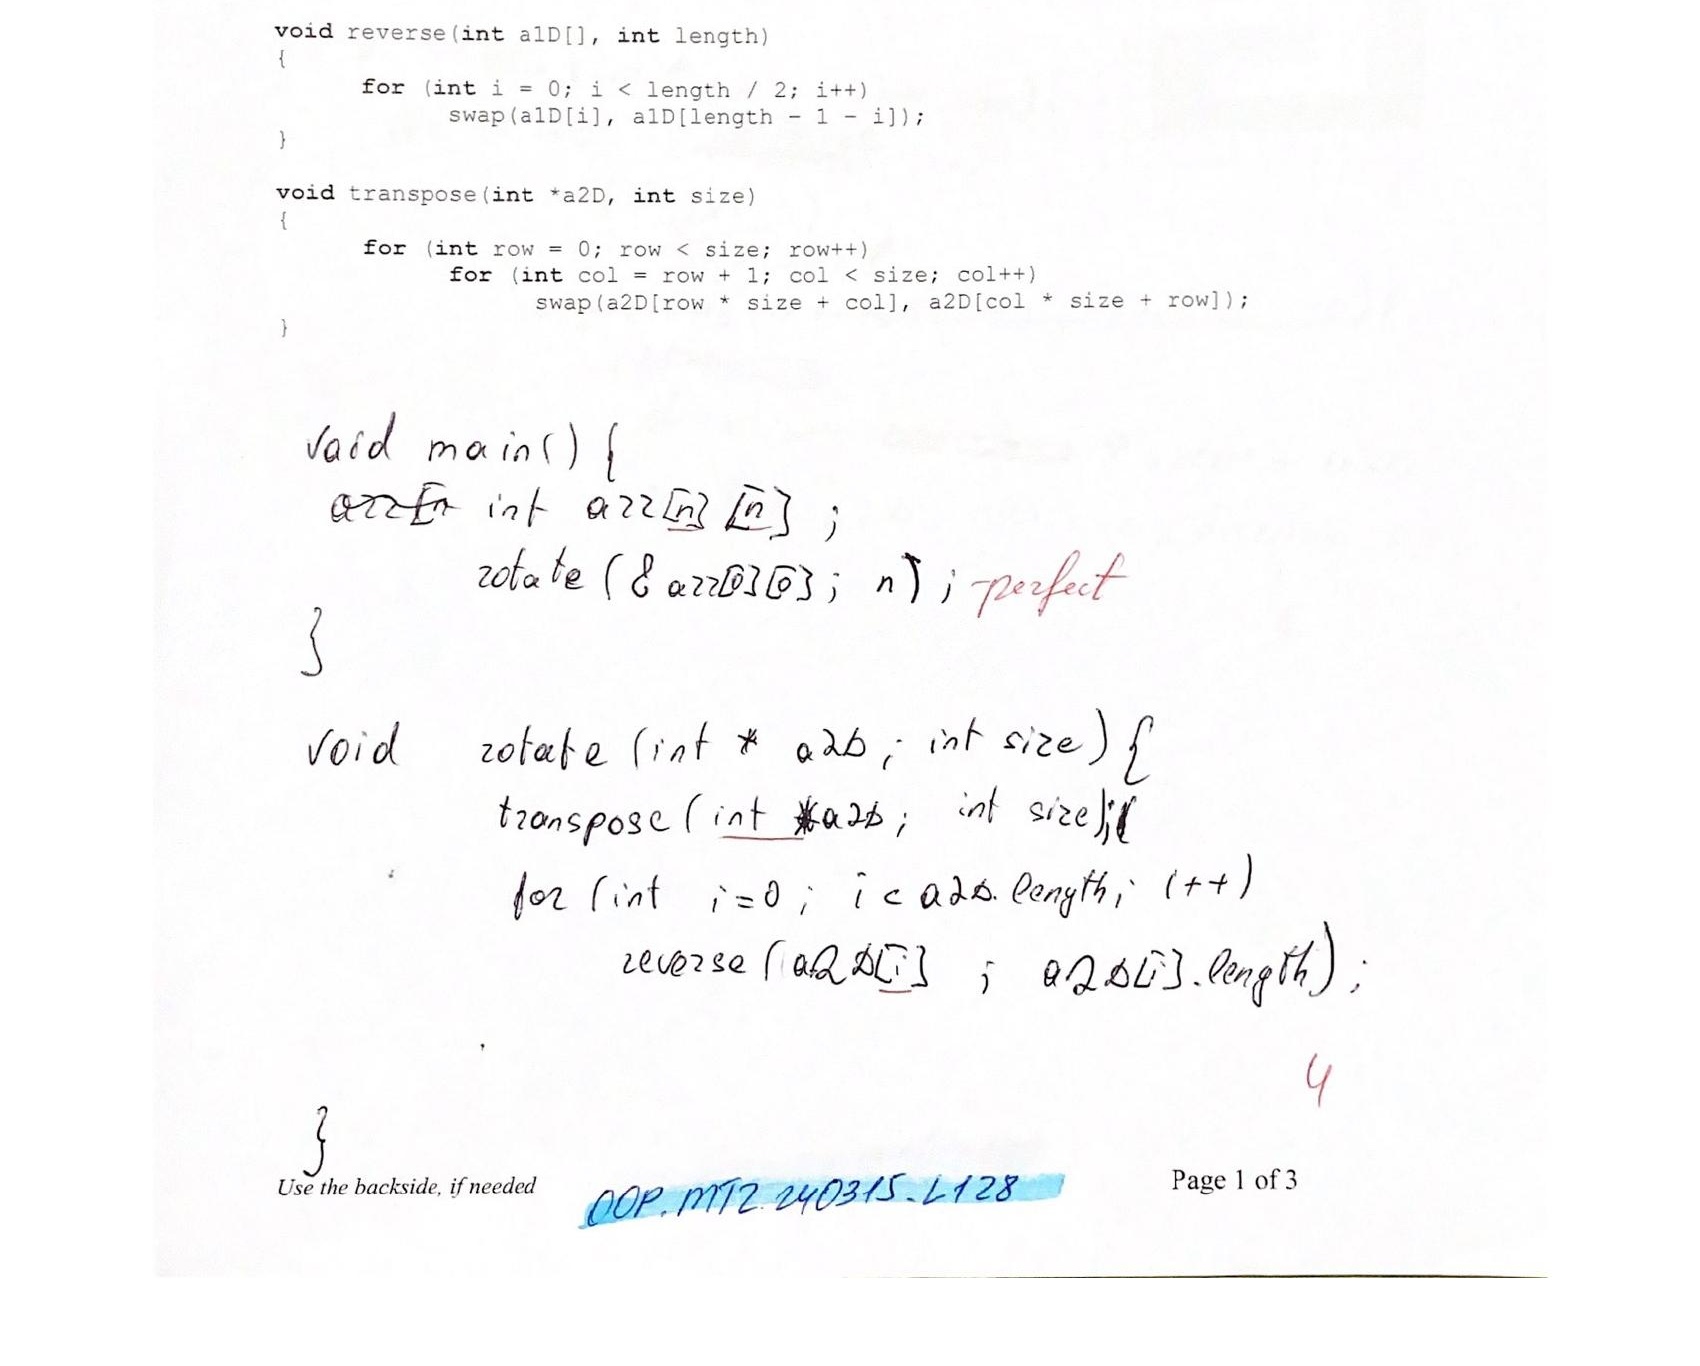 void reverse(int a1D[], int length)
{
for (int i = 0; i < length / 2; i++)
swap(a1D[i], a1D[length - 1 - i]);
}
void transpose(int *a2D, int size)
{
for (int row = 0; row < size; row++)
for (int col = row + 1; col < size; col++)
swap(a2D[row * size + col], a2D[col * size + row]);
}
void main() {
arr[n int arr[n] [n] ;
rotate (& arr[0][0] ; n) ; - perfect
}
void rotate (int * a2D ; int size) {
transpose ( int *a2D ; int size);
for (int i=0 ; i < a2D.length ; i++)
reverse (a2D[i] ; a2D[i].length) ;
4
}
Use the backside, if needed OOP.MT2.240315.L128 Page 1 of 3